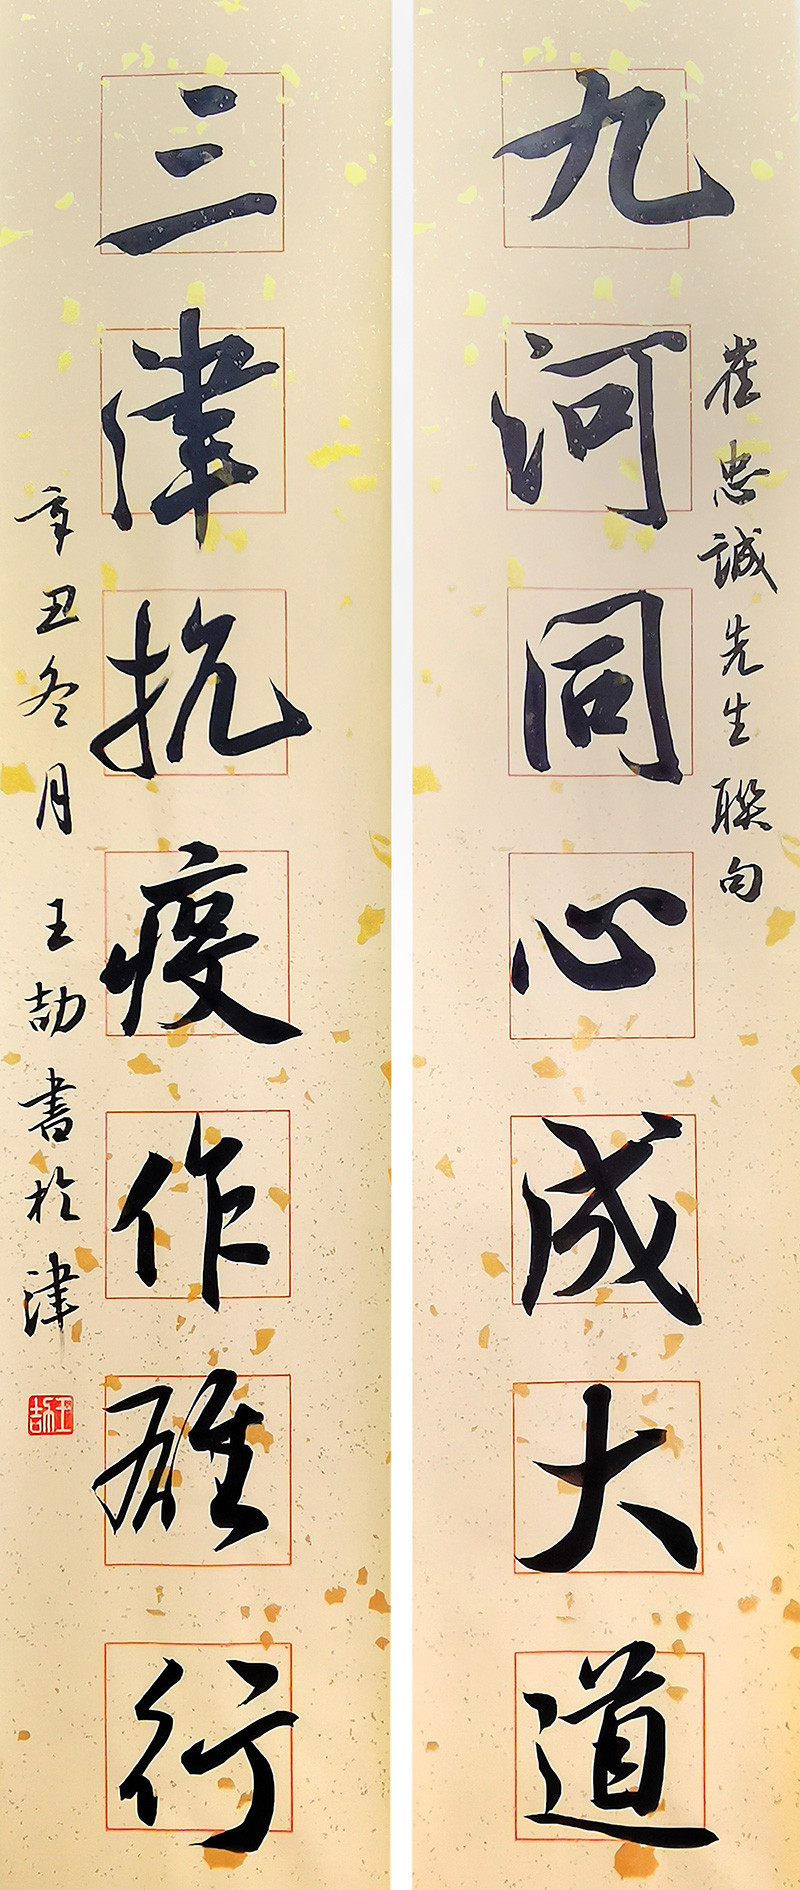 崔忠誠先生聯句
九河同心成大道
三津抗疫作雄行
辛丑冬月王劼書於津
王劼